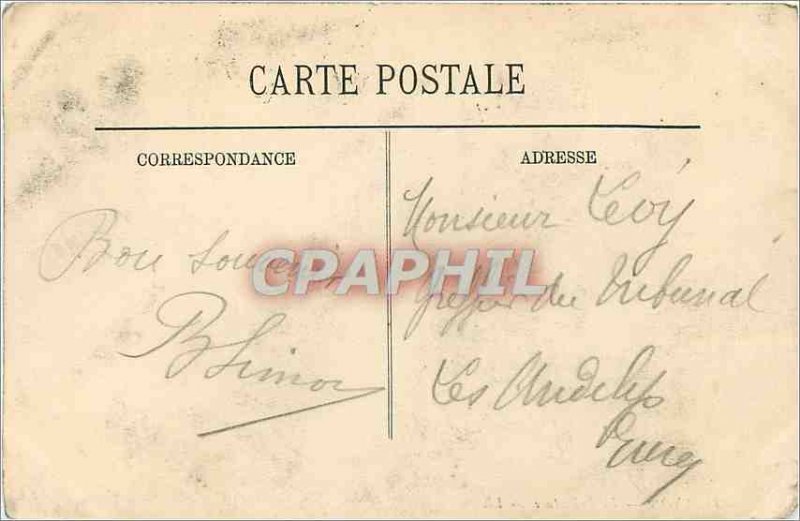 CARTE POSTALE
CORRESPONDANCE
ADRESSE
Bon souvenir
BSimon
Monsieur Levy
Greffier du Tribunal
Les Andelys
Eure
CPAPHIL